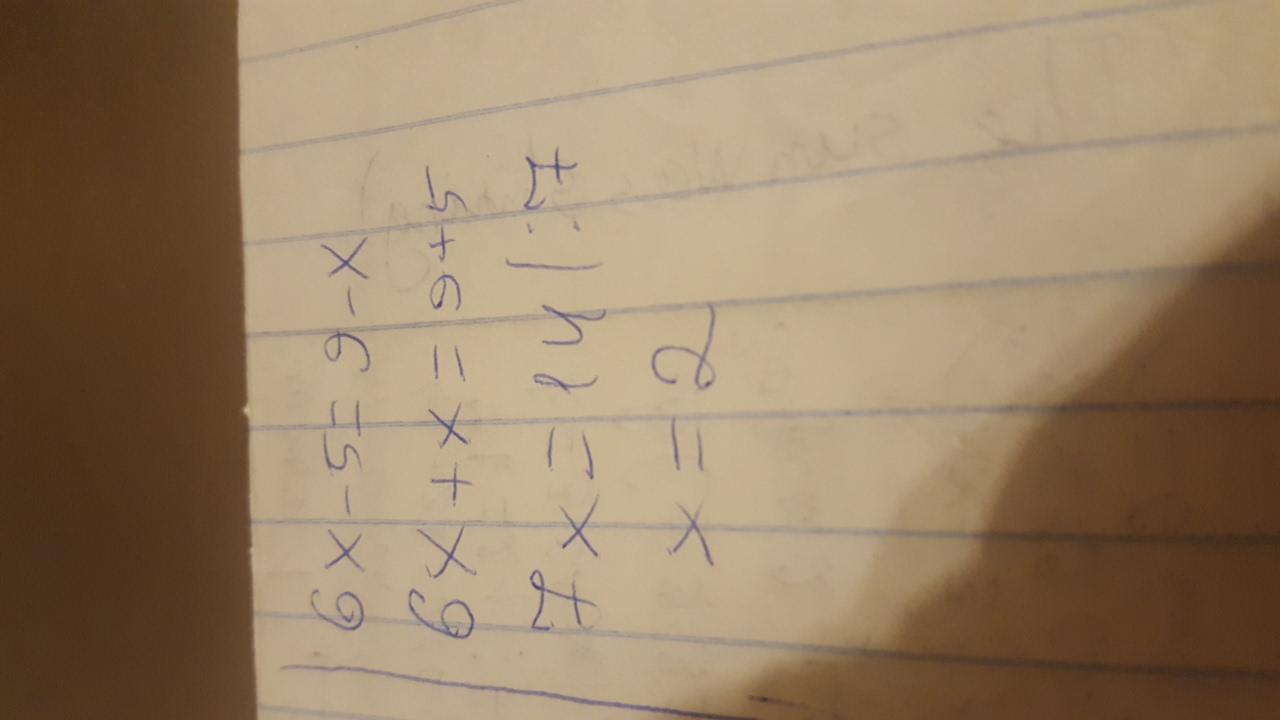 6x-5=9-x
6x+x=9+5
7x=14|:7
x=2